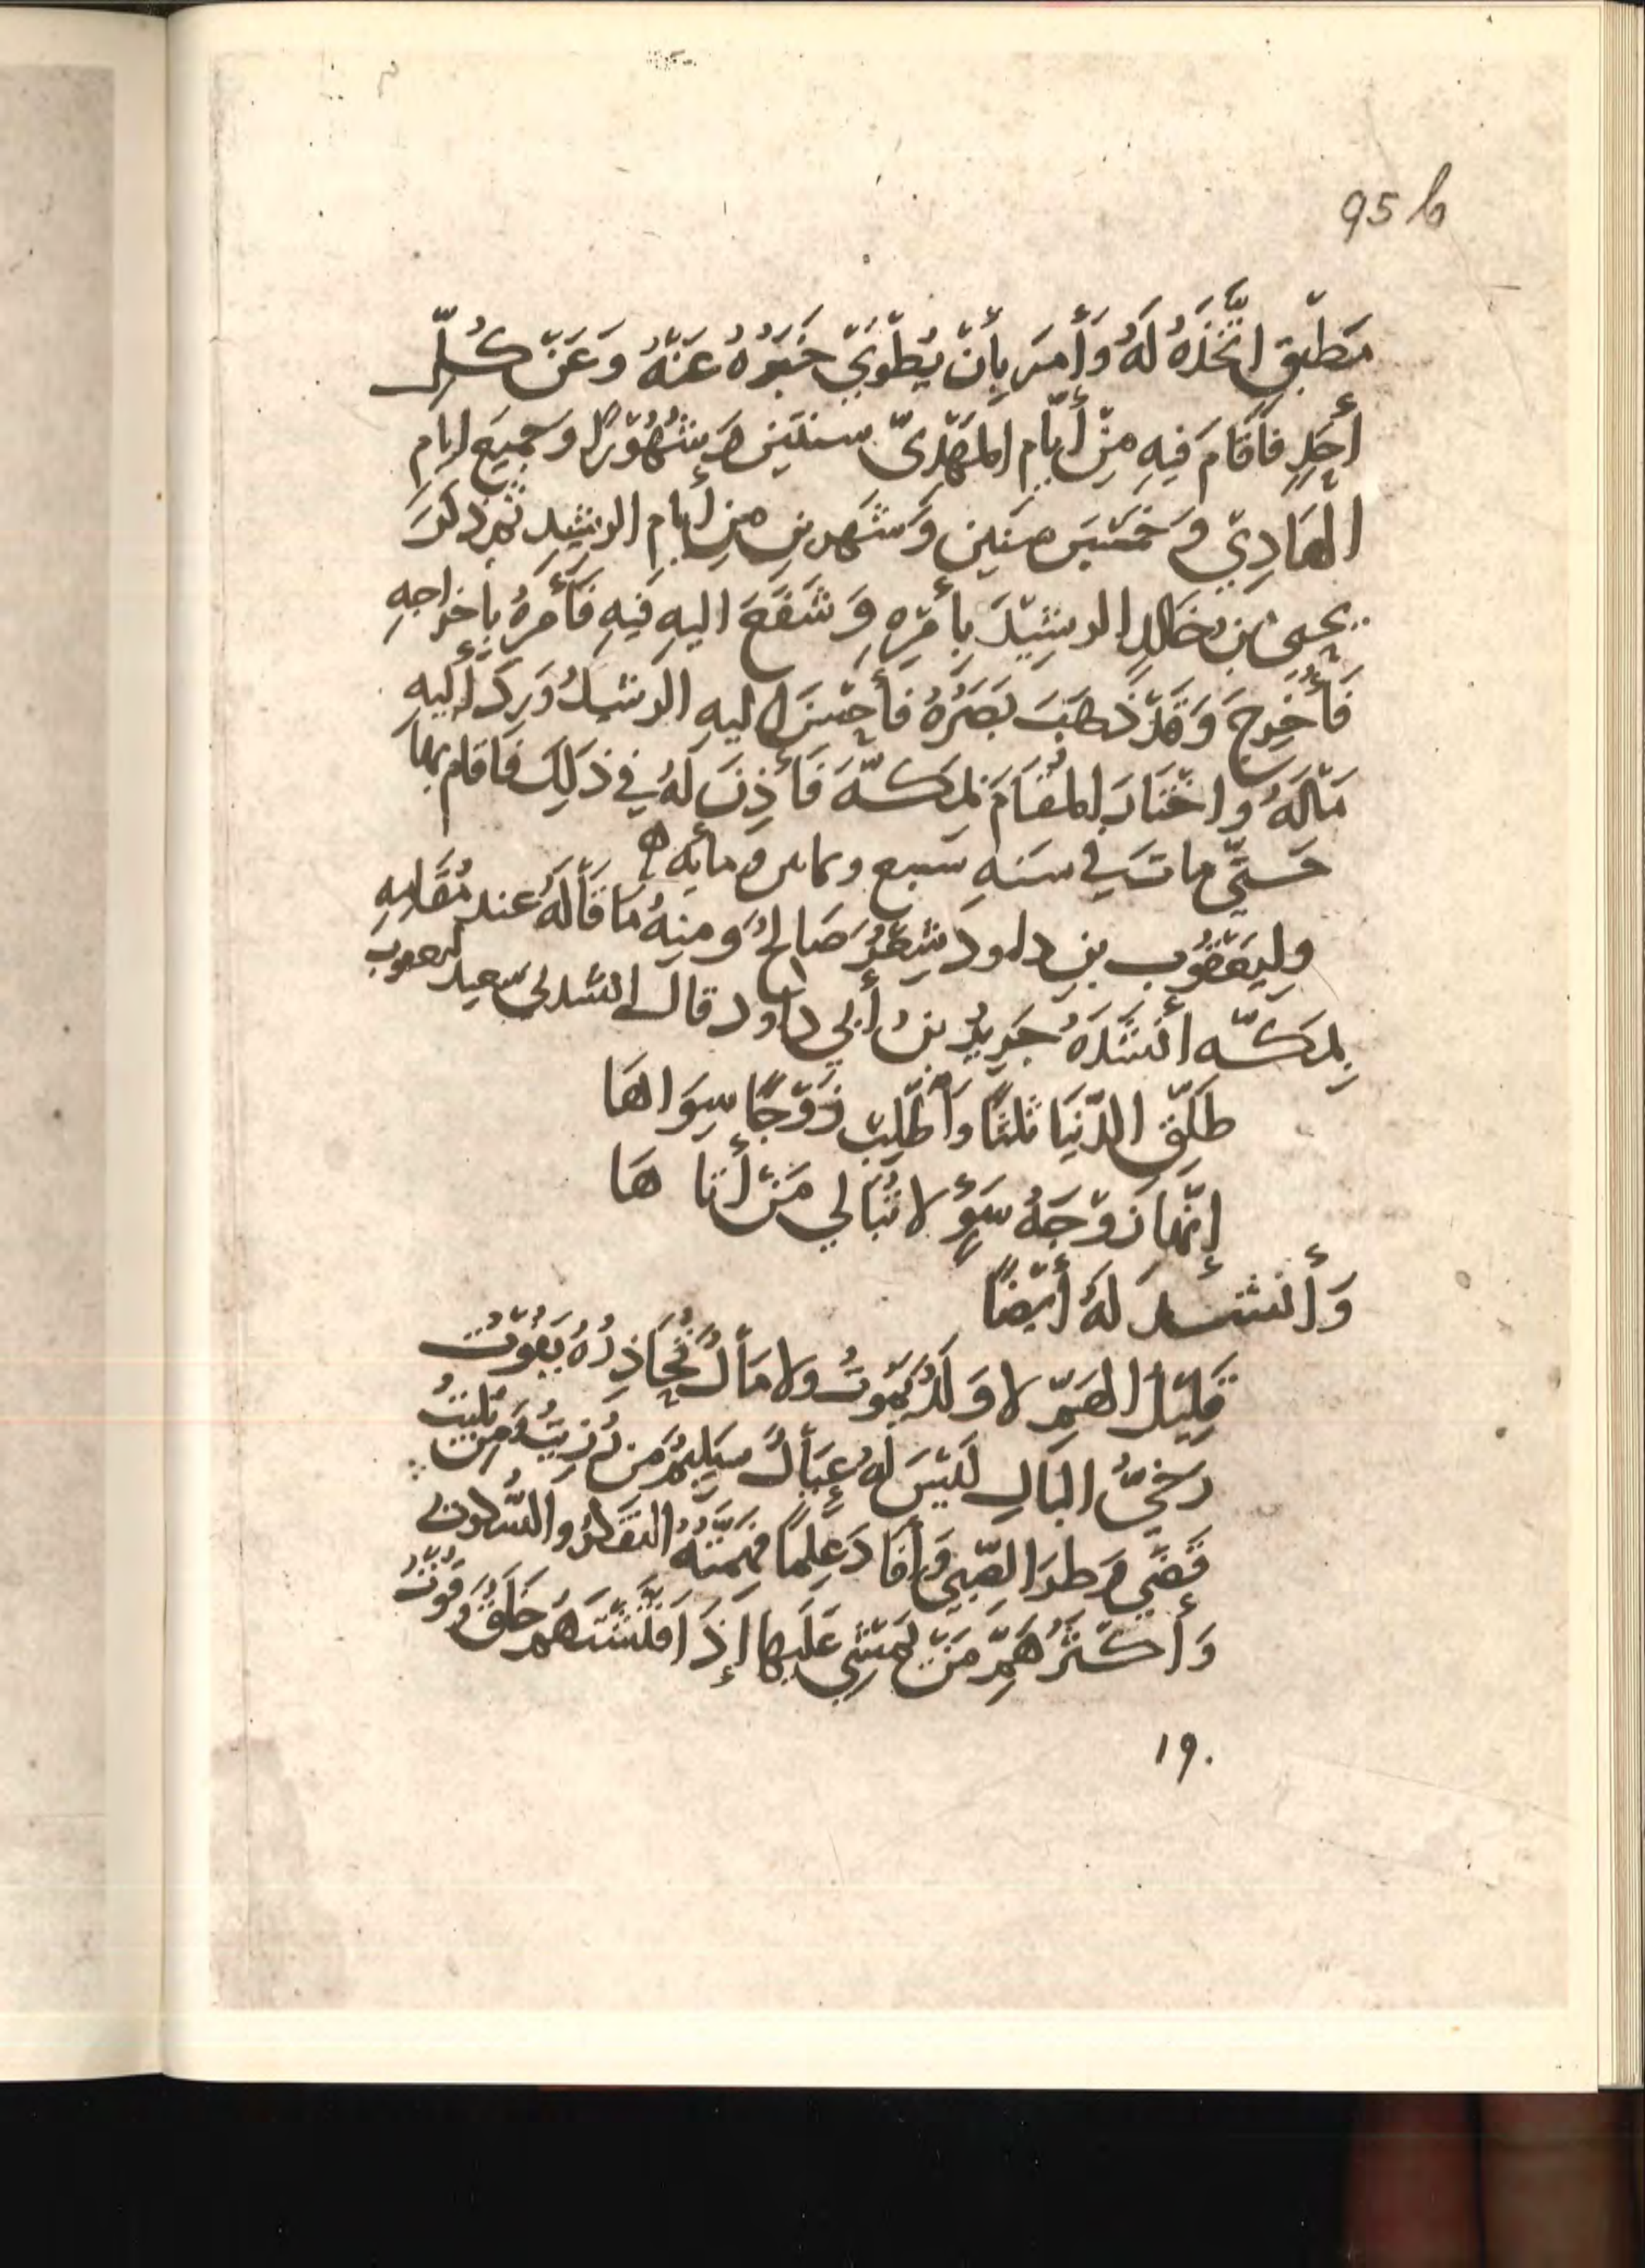 95 b
مَطْبَقٍ اتَّخَذَهُ لَهُ وَأَمَرَ بِأَنْ يُطْوَيْ خَبَرُهُ عَنْهُ وَعَنْ كُلِّ
أَحَدٍ فَأَقَامَ فِيهِ مِنْ أَيَّامِ المَهْدِىّ سنتَين وَشُهُوْرًا وجَمِيعَ ايامِ
الْهَادِيّ وَ خَمْسَ سِنَين وَشَهرينِ مِن أَيام الرشِيدِ ثم ذكرَ
يحيىٰ بن خَالدٍ الرشِيْدَ بِأَمْرِهِ وَشَفَعَ اليهِ فيهِ فَأَمَرَ بإخراجِهِ
فَأُخْرِجَ وَقَدْ ذَهَبَ بَصَرُهُ فَأَحْسَنَ اليهِ الرشيدُ وَرَدَّ إليهِ
مَالَهُ واخْتَارَ المُقَامَ بِمَكَّةَ فَأَذِنَ لَهُ فِي ذَلِكَ فَأقام بها
حَتَّي ماتَ في سَنَهِ سَبع وثمانين ومائه ه
ولِيَعْقُوب بنِ داود شِعْرٌ صَالحٌ ومنهُ مَا قَالَهُ عند مُقَامِهِ
بِمَكّه أَنْشَدَهُ جَرِيرُ بنُ أَبي داود قال انشدنى سعيد ليعقوب
طَلِّقِ الدّنيَا ثلثًا وَاطْلِبْ زَوْجًا سِوَاهَا
إِنّما زَوْجَهُ سَوْءٍ لا تُبَالي مَنْ أَتاهَا
وَأنشد لَهُ أَيْضًا
قَلِيْلُ الهَمِّ لا وَلَدٌ يَمُوتُ ولا مَالٌ يُحَاذِرُهُ يَفُوْتُ
رَخِيُّ البَالِ لَيْسَ لَهُ عِيَالٌ سَلِيمٌ مَن رُزِيتُ وَمَن بُلِيتُ
قَضَي وَطرَ الصّبي وَأَفَادَ عِلمًا فهمَّتُهُ التفَكرُ والسُّكوت
وَأَكْثَرُ هَمِّ مَنْ يَمْشِي عَلَيها إِذَا فَتَّشْتَهم خَلَقٌ وقُوْتُ
١٩٠